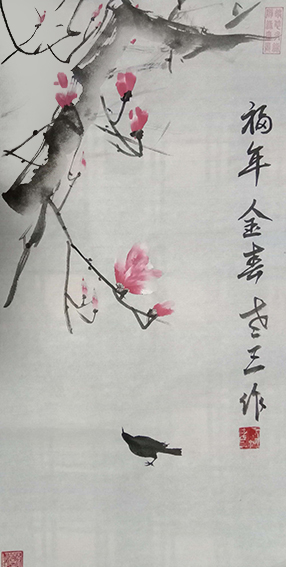 福年金春老三作